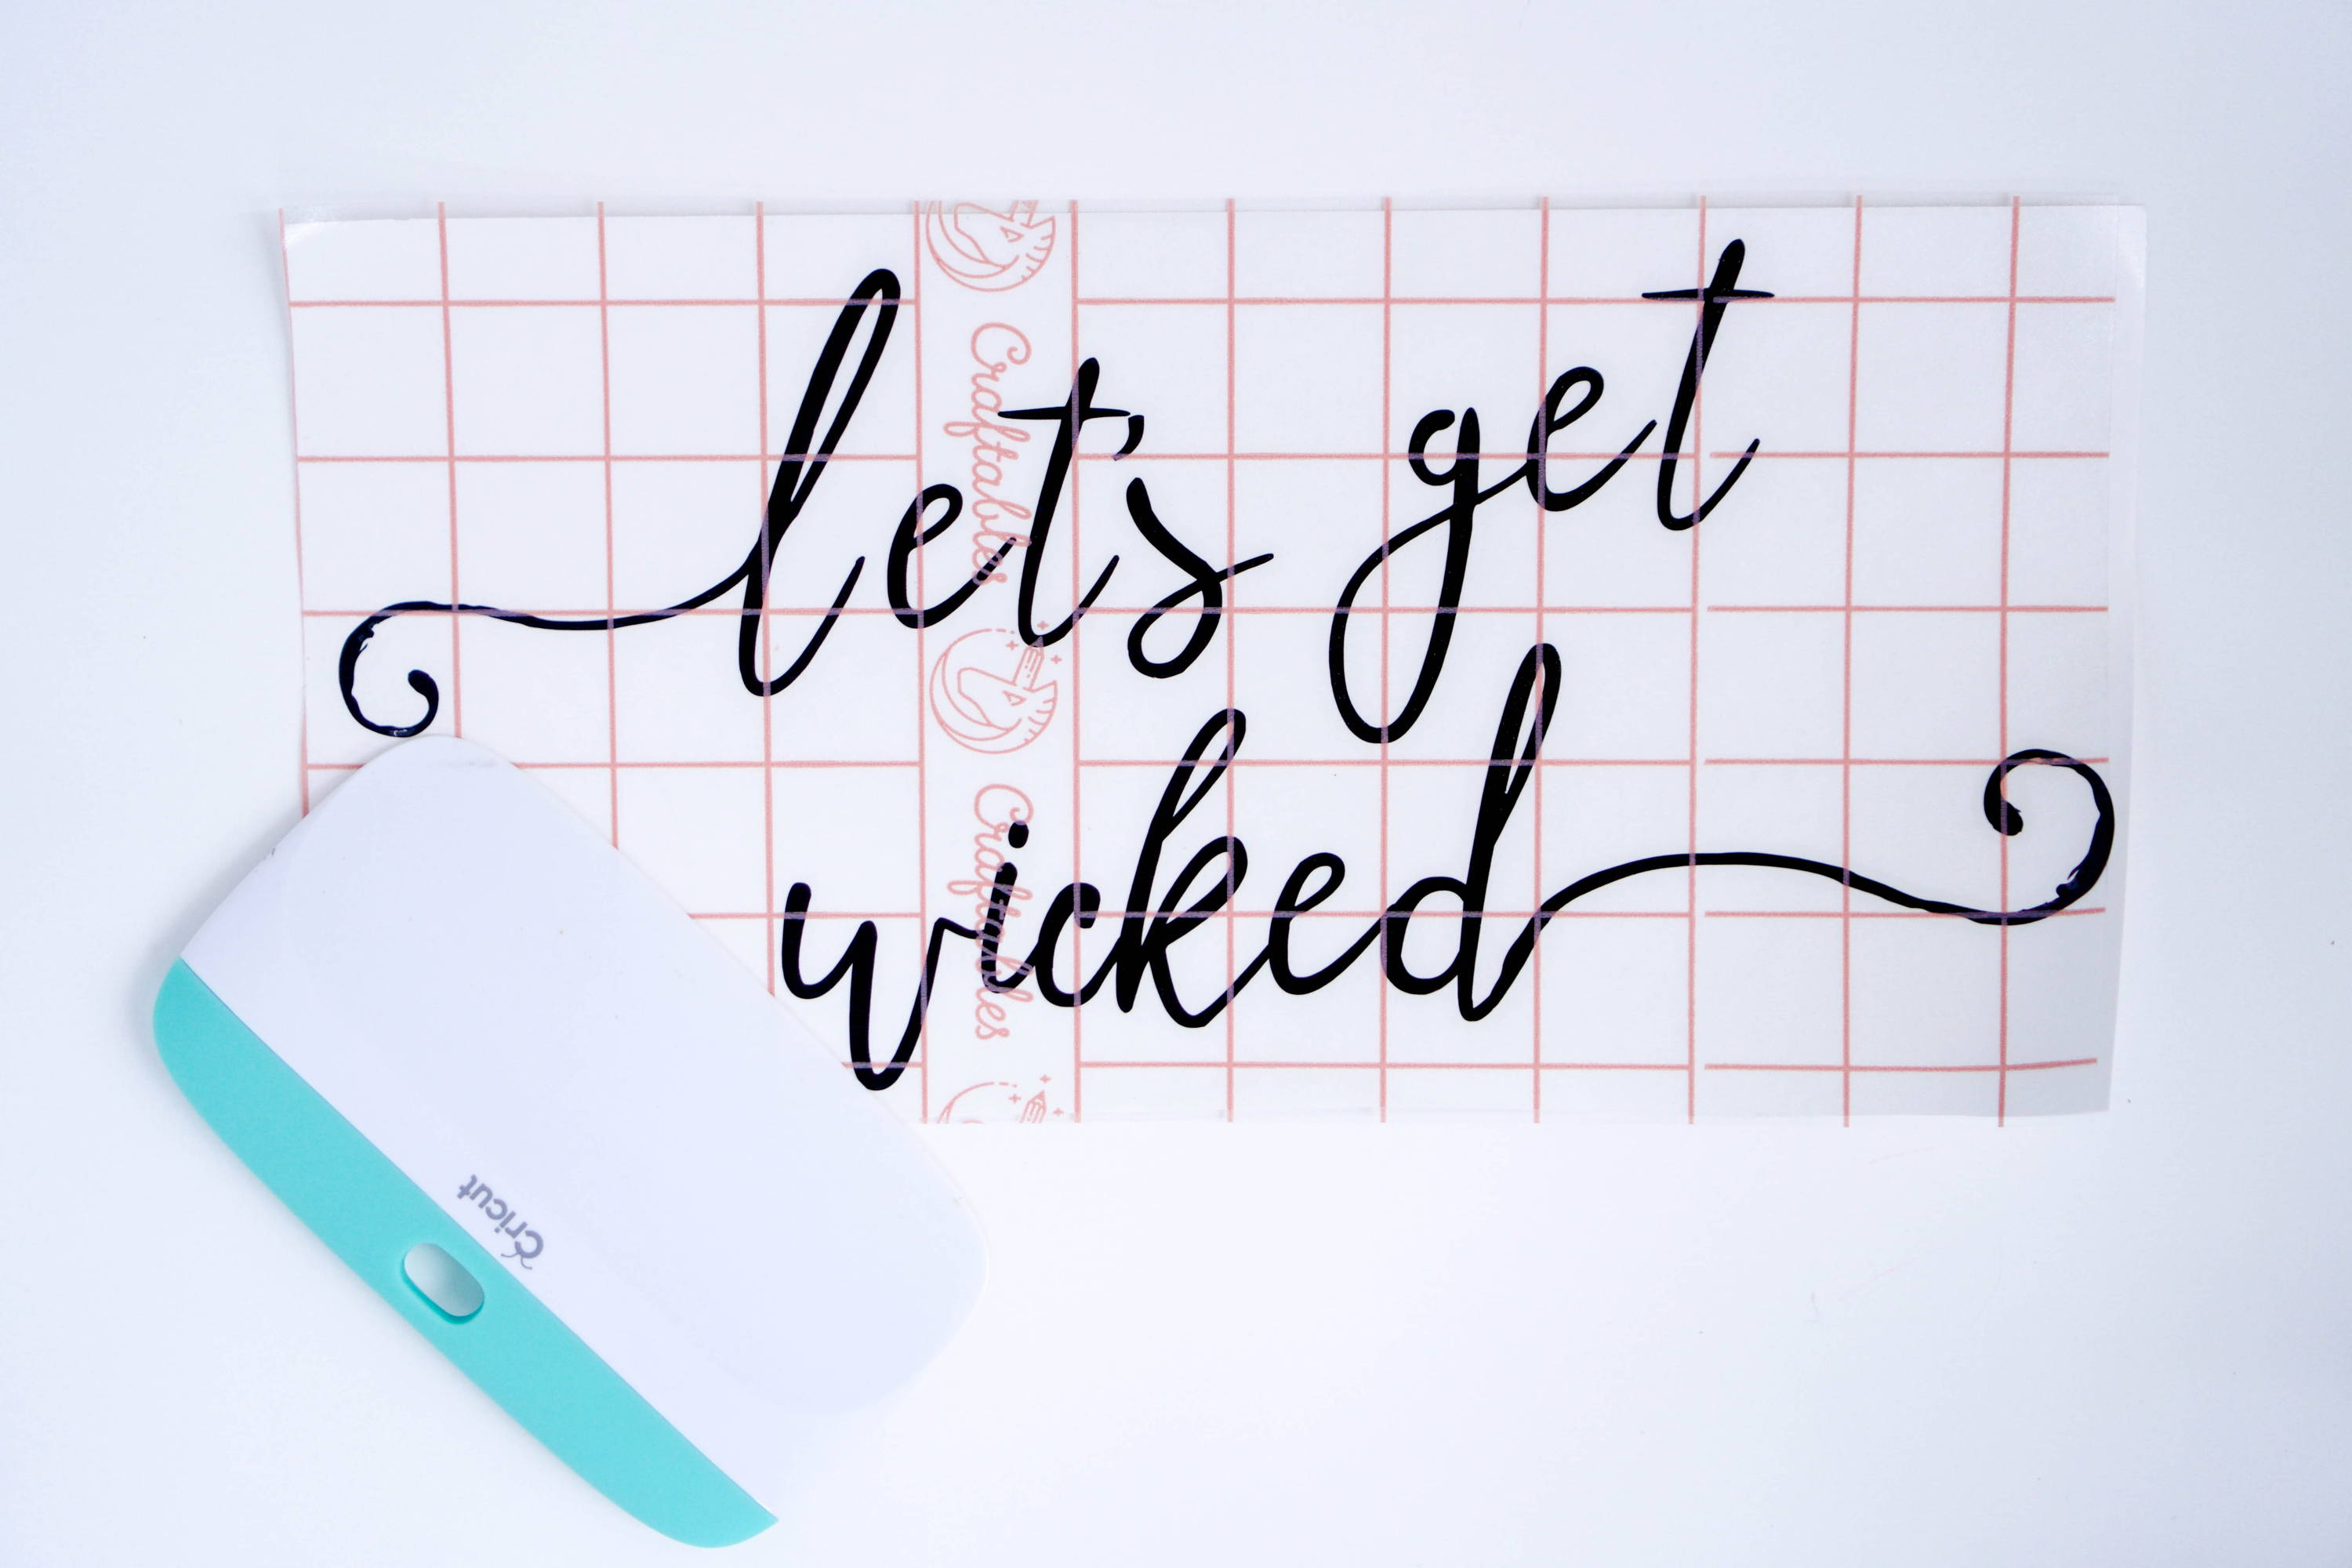 let's get
wicked
Craftables
Craftables
Cricut